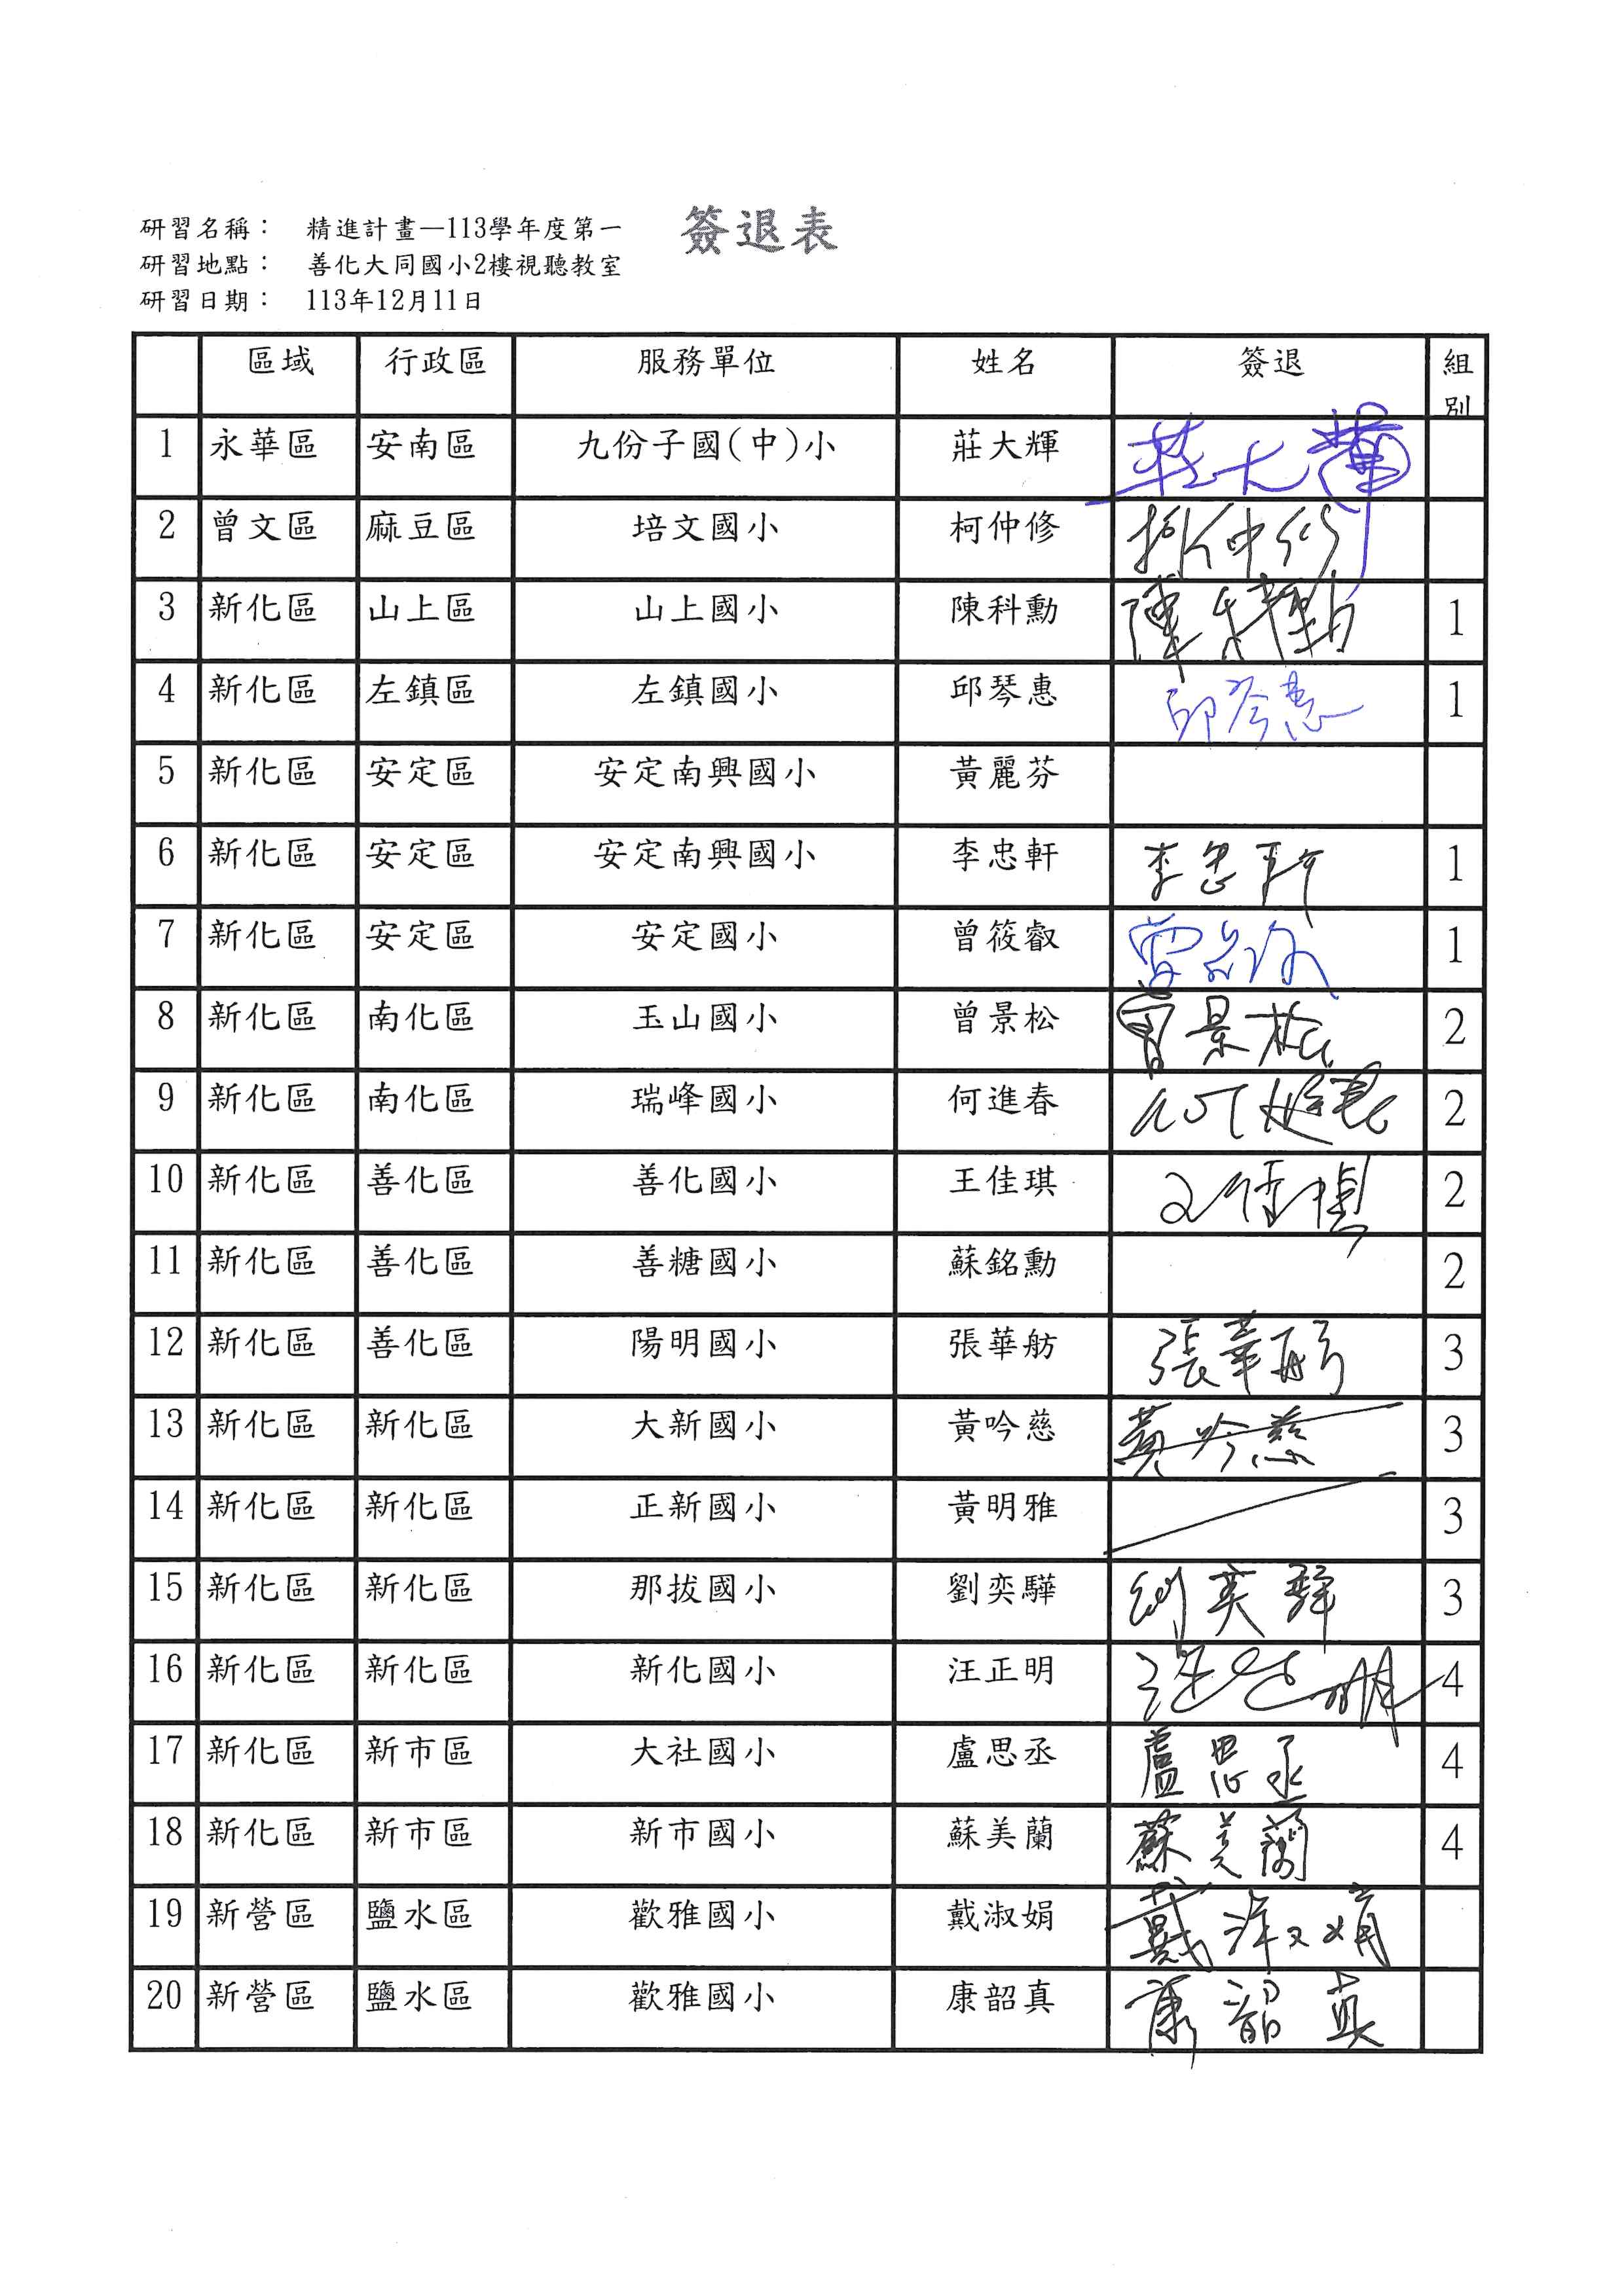 簽退表
研習名稱： 精進計畫—113學年度第一
研習地點： 善化大同國小2樓視聽教室
研習日期： 113年12月11日
區域 行政區 服務單位 姓名 簽退 組別
1 永華區 安南區 九份子國(中)小 莊大輝 莊大輝
2 曾文區 麻豆區 培文國小 柯仲修 柯仲修
3 新化區 山上區 山上國小 陳科勳 陳科勳 1
4 新化區 左鎮區 左鎮國小 邱琴惠 邱琴惠 1
5 新化區 安定區 安定南興國小 黃麗芬
6 新化區 安定區 安定南興國小 李忠軒 李忠軒 1
7 新化區 安定區 安定國小 曾筱叡 曾筱叡 1
8 新化區 南化區 玉山國小 曾景松 曾景松 2
9 新化區 南化區 瑞峰國小 何進春 何進春 2
10 新化區 善化區 善化國小 王佳琪 王佳琪 2
11 新化區 善化區 善糖國小 蘇銘勳 2
12 新化區 善化區 陽明國小 張華舫 張華舫 3
13 新化區 新化區 大新國小 黃吟慈 黃吟慈 3
14 新化區 新化區 正新國小 黃明雅 3
15 新化區 新化區 那拔國小 劉奕驊 劉奕驊 3
16 新化區 新化區 新化國小 汪正明 汪正明 4
17 新化區 新市區 大社國小 盧思丞 盧思丞 4
18 新化區 新市區 新市國小 蘇美蘭 蘇美蘭 4
19 新營區 鹽水區 歡雅國小 戴淑娟 戴淑娟
20 新營區 鹽水區 歡雅國小 康韶真 康韶真